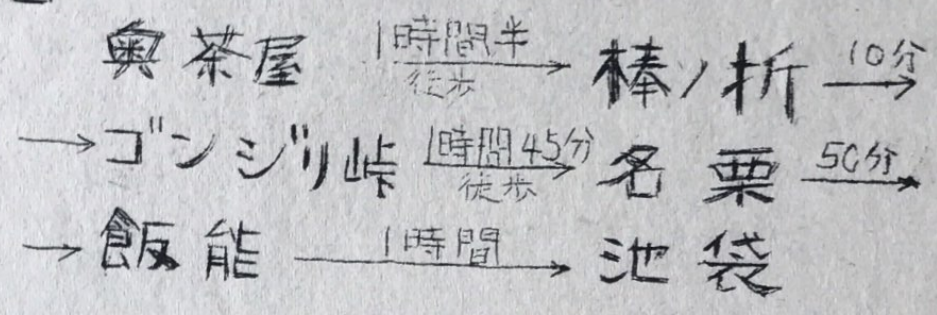 奥茶屋 1時間半 徒歩 → 棒ノ折 10分 →
→ ゴンジリ峠 1時間45分 徒歩 → 名栗 50分 →
→ 飯能 1時間 → 池袋